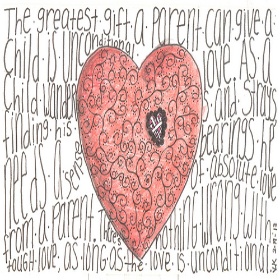 The greatest gift a parent can give a
child is unconditional love. As a
child wanders and strays
finding his bearings, he
needs a sense of absolute love
from a parent. There's nothing wrong with
tough love, as long as the love is unconditional.